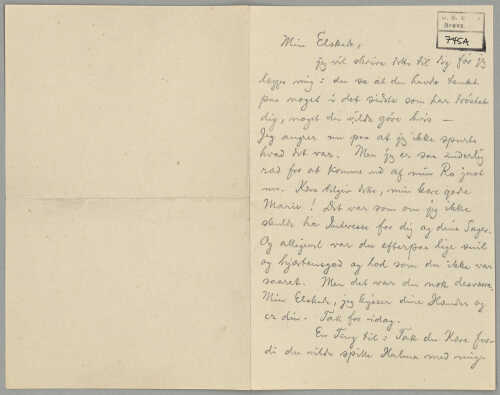 U. B. O
Brevs.
745A
Min Elskede,
jeg vil skrive dette til dig før jeg
lægger mig: du sa at du havde tænkt
paa noget i det sidste som har trøstet
dig, noget du vilde gøre hvis —
Jeg angrer nu paa at jeg ikke spurte
hvad det var. Men jeg er saa inderlig
ræd for at komme ud af min Ro just
nu. Kære tilgiv dette, min kære gode
Marie! Det var som om jeg ikke
skulde ha Interesse for dig og dine Sager.
Og alligevel var du efterpaa lige snil
og hjærtensgod og lod som du ikke var
saaret. Men det var du nok desværre.
Min Elskede, jeg kysser dine Hænder og
er din. Tak for idag.
En Ting til: Tak du Kære for-
di du vilde spille Halma med